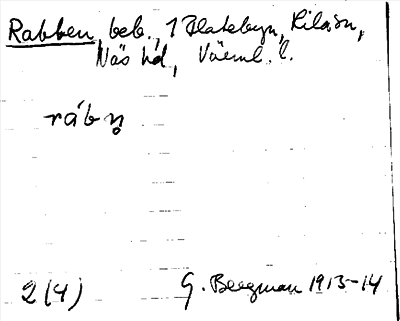 Rabben, beb., 1 Slatebyn, Kila sn,
Näs hd, Värml. l.
rábn̥
2(4) G. Bergman 1913-14